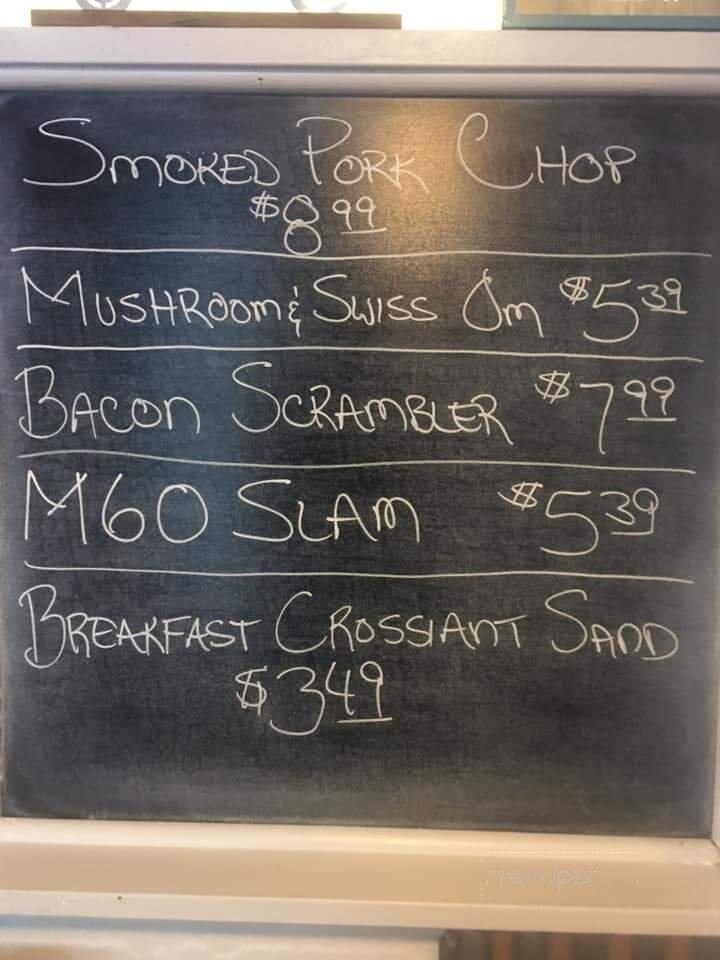 SMOKED PORK CHOP
$8.99
MUSHROOM & SWISS OM $5.39
BACON SCRAMBLER $7.99
M60 SLAM $5.39
BREAKFAST CROSSIANT SAND
$3.49
menupix